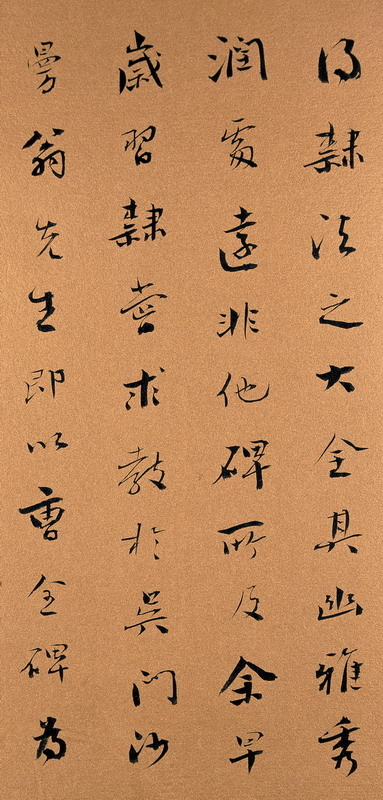 得隸法之大全具幽雅秀
潤處遠非他碑所及余早
歲習隸嘗求教於吳門沙
曼翁先生即以曹全碑為